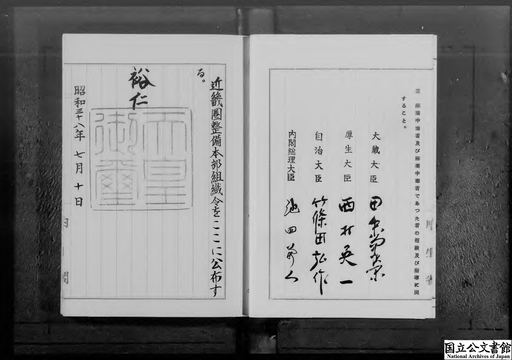 三 麻薬中毒者及び麻薬中毒者であつた者の相談及び指導に関
すること。
大蔵大臣 田中角榮
厚生大臣 西村英一
自治大臣 篠田弘作
内閣総理大臣 池田勇人
近畿圏整備本部組織令をここに公布す
る。
裕仁
天皇御璽
昭和三十八年七月十日
国立公文書館
National Archives of Japan